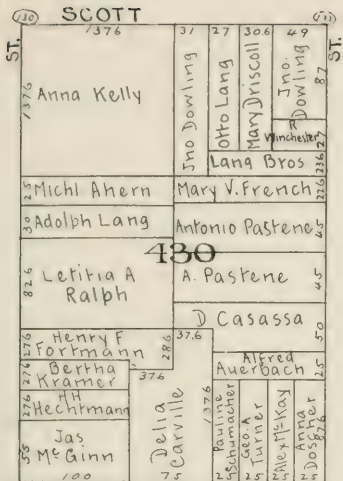 130
SCOTT
ST.
ST.
1376
31
27
30.6
49
1376
Anna Kelly
Jno Dowling
Otto Lang
Mary Driscoll
Jno. Dowling
87
R Winchester
27
Lang Bros
236
25
Michl Ahern
Mary V. French
226
30
Adolph Lang
Antonio Pastene
45
430
826
Letitia A
Ralph
A. Pastene
45
D Casassa
50
276
Henry F
Fortmann
286
37.6
Alfred
Auerbach
25
276
Bertha
Kramer
376
276
HH
Hechtmann
Delia
Carville
1376
Pauline
Schumacher
Geo. A
Turner
Alex McKay
Anna
Doscher
876
55
Jas
McGinn
100
75
25
25
25
25